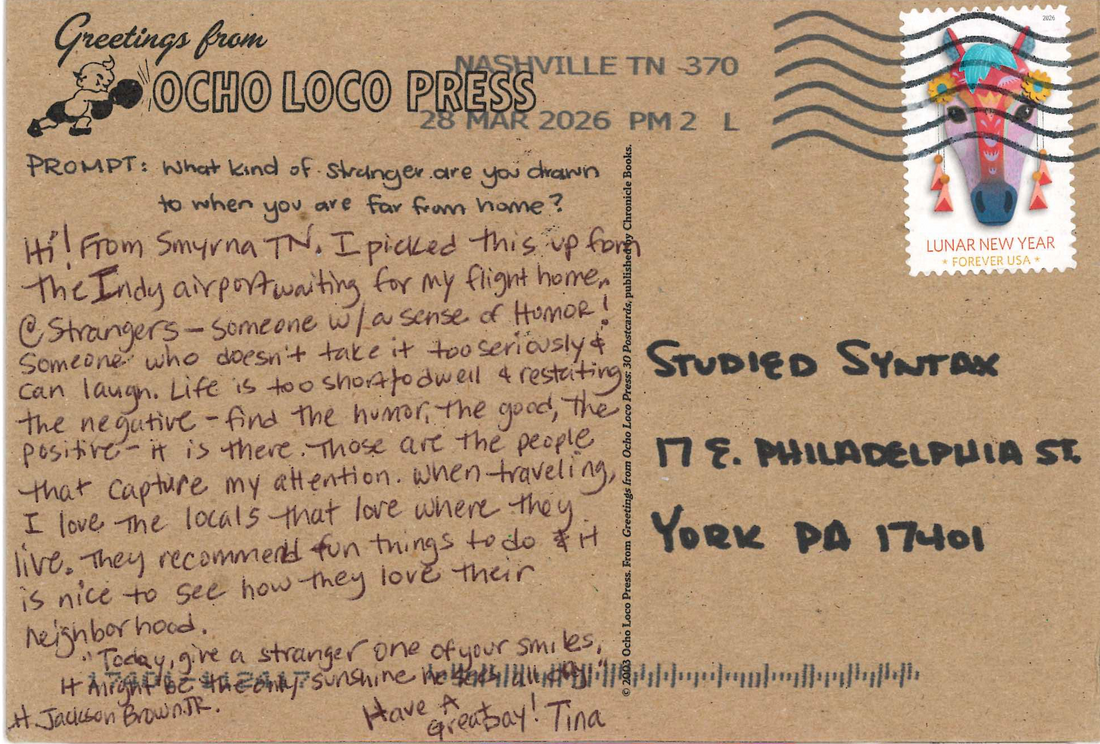 Greetings from
OCHO LOCO PRESS
NASHVILLE TN 370
28 MAR 2026 PM 2 L
2026
LUNAR NEW YEAR
* FOREVER USA *
PROMPT: What kind of stranger are you drawn
to when you are far from home?
Hi! From Smyrna TN. I picked this up form
the Indy airport waiting for my flight home.
@ Strangers – Someone w/ a sense of Humor!
Someone who doesn't take it too seriously &
can laugh. Life is too short to dwell & restating
the negative – find the humor, the good, the
positive – it is there. Those are the people
that capture my attention. When traveling,
I love the locals that love where they
live. They recommend fun things to do & it
is nice to see how they love their
neighborhood.
"Today, give a stranger one of your smiles,
it might be the only sunshine he sees all day."
H. Jackson Brown JR.
Have A
Great Day! Tina
© 2003 Ocho Loco Press. From Greetings from Ocho Loco Press: 30 Postcards, published by Chronicle Books.
STUDIED SYNTAX
17 E. PHILADELPHIA ST.
YORK PA 17401